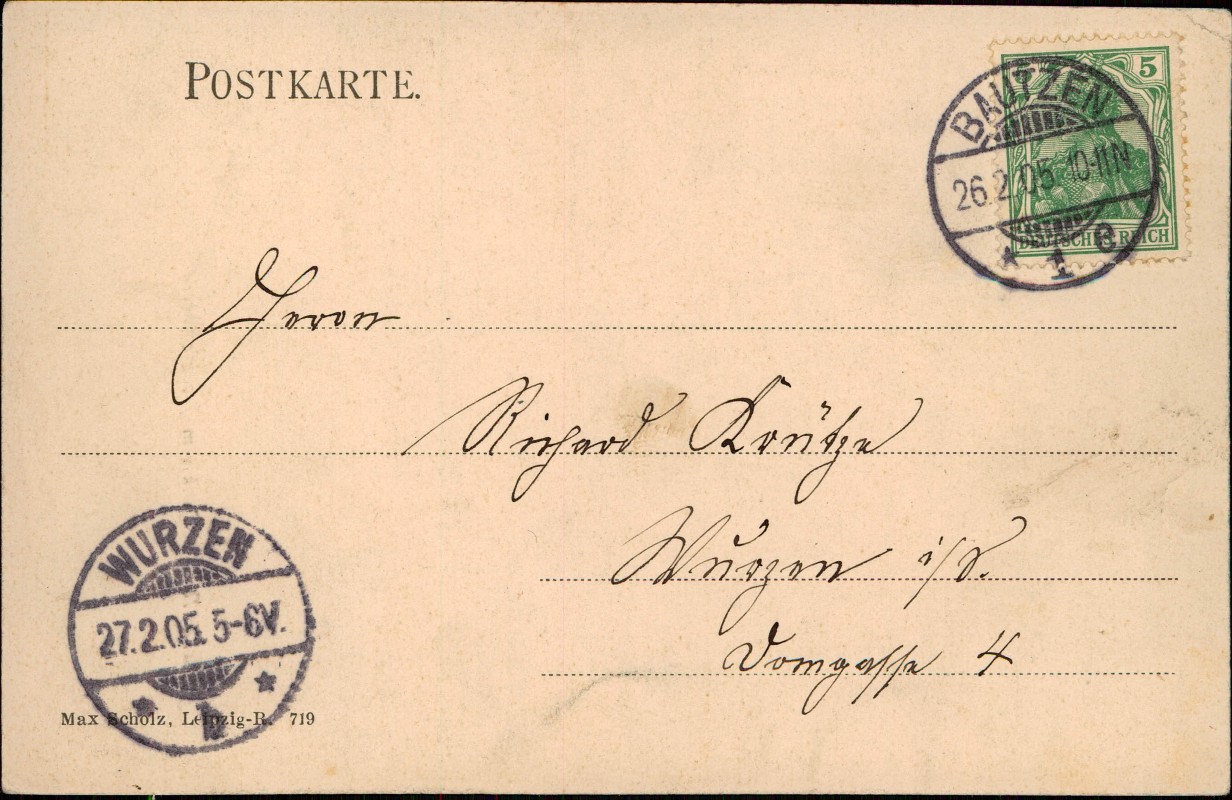 POSTKARTE.
5
BAUTZEN
26.2.05 10-11N
* 1 c
DEUTSCHES REICH
Herrn
Richard Krütze
Wurzen i/S.
Domgasse 4
WURZEN
27.2.05. 5-6V.
* b *
Max Scholz, Leipzig-R. 719